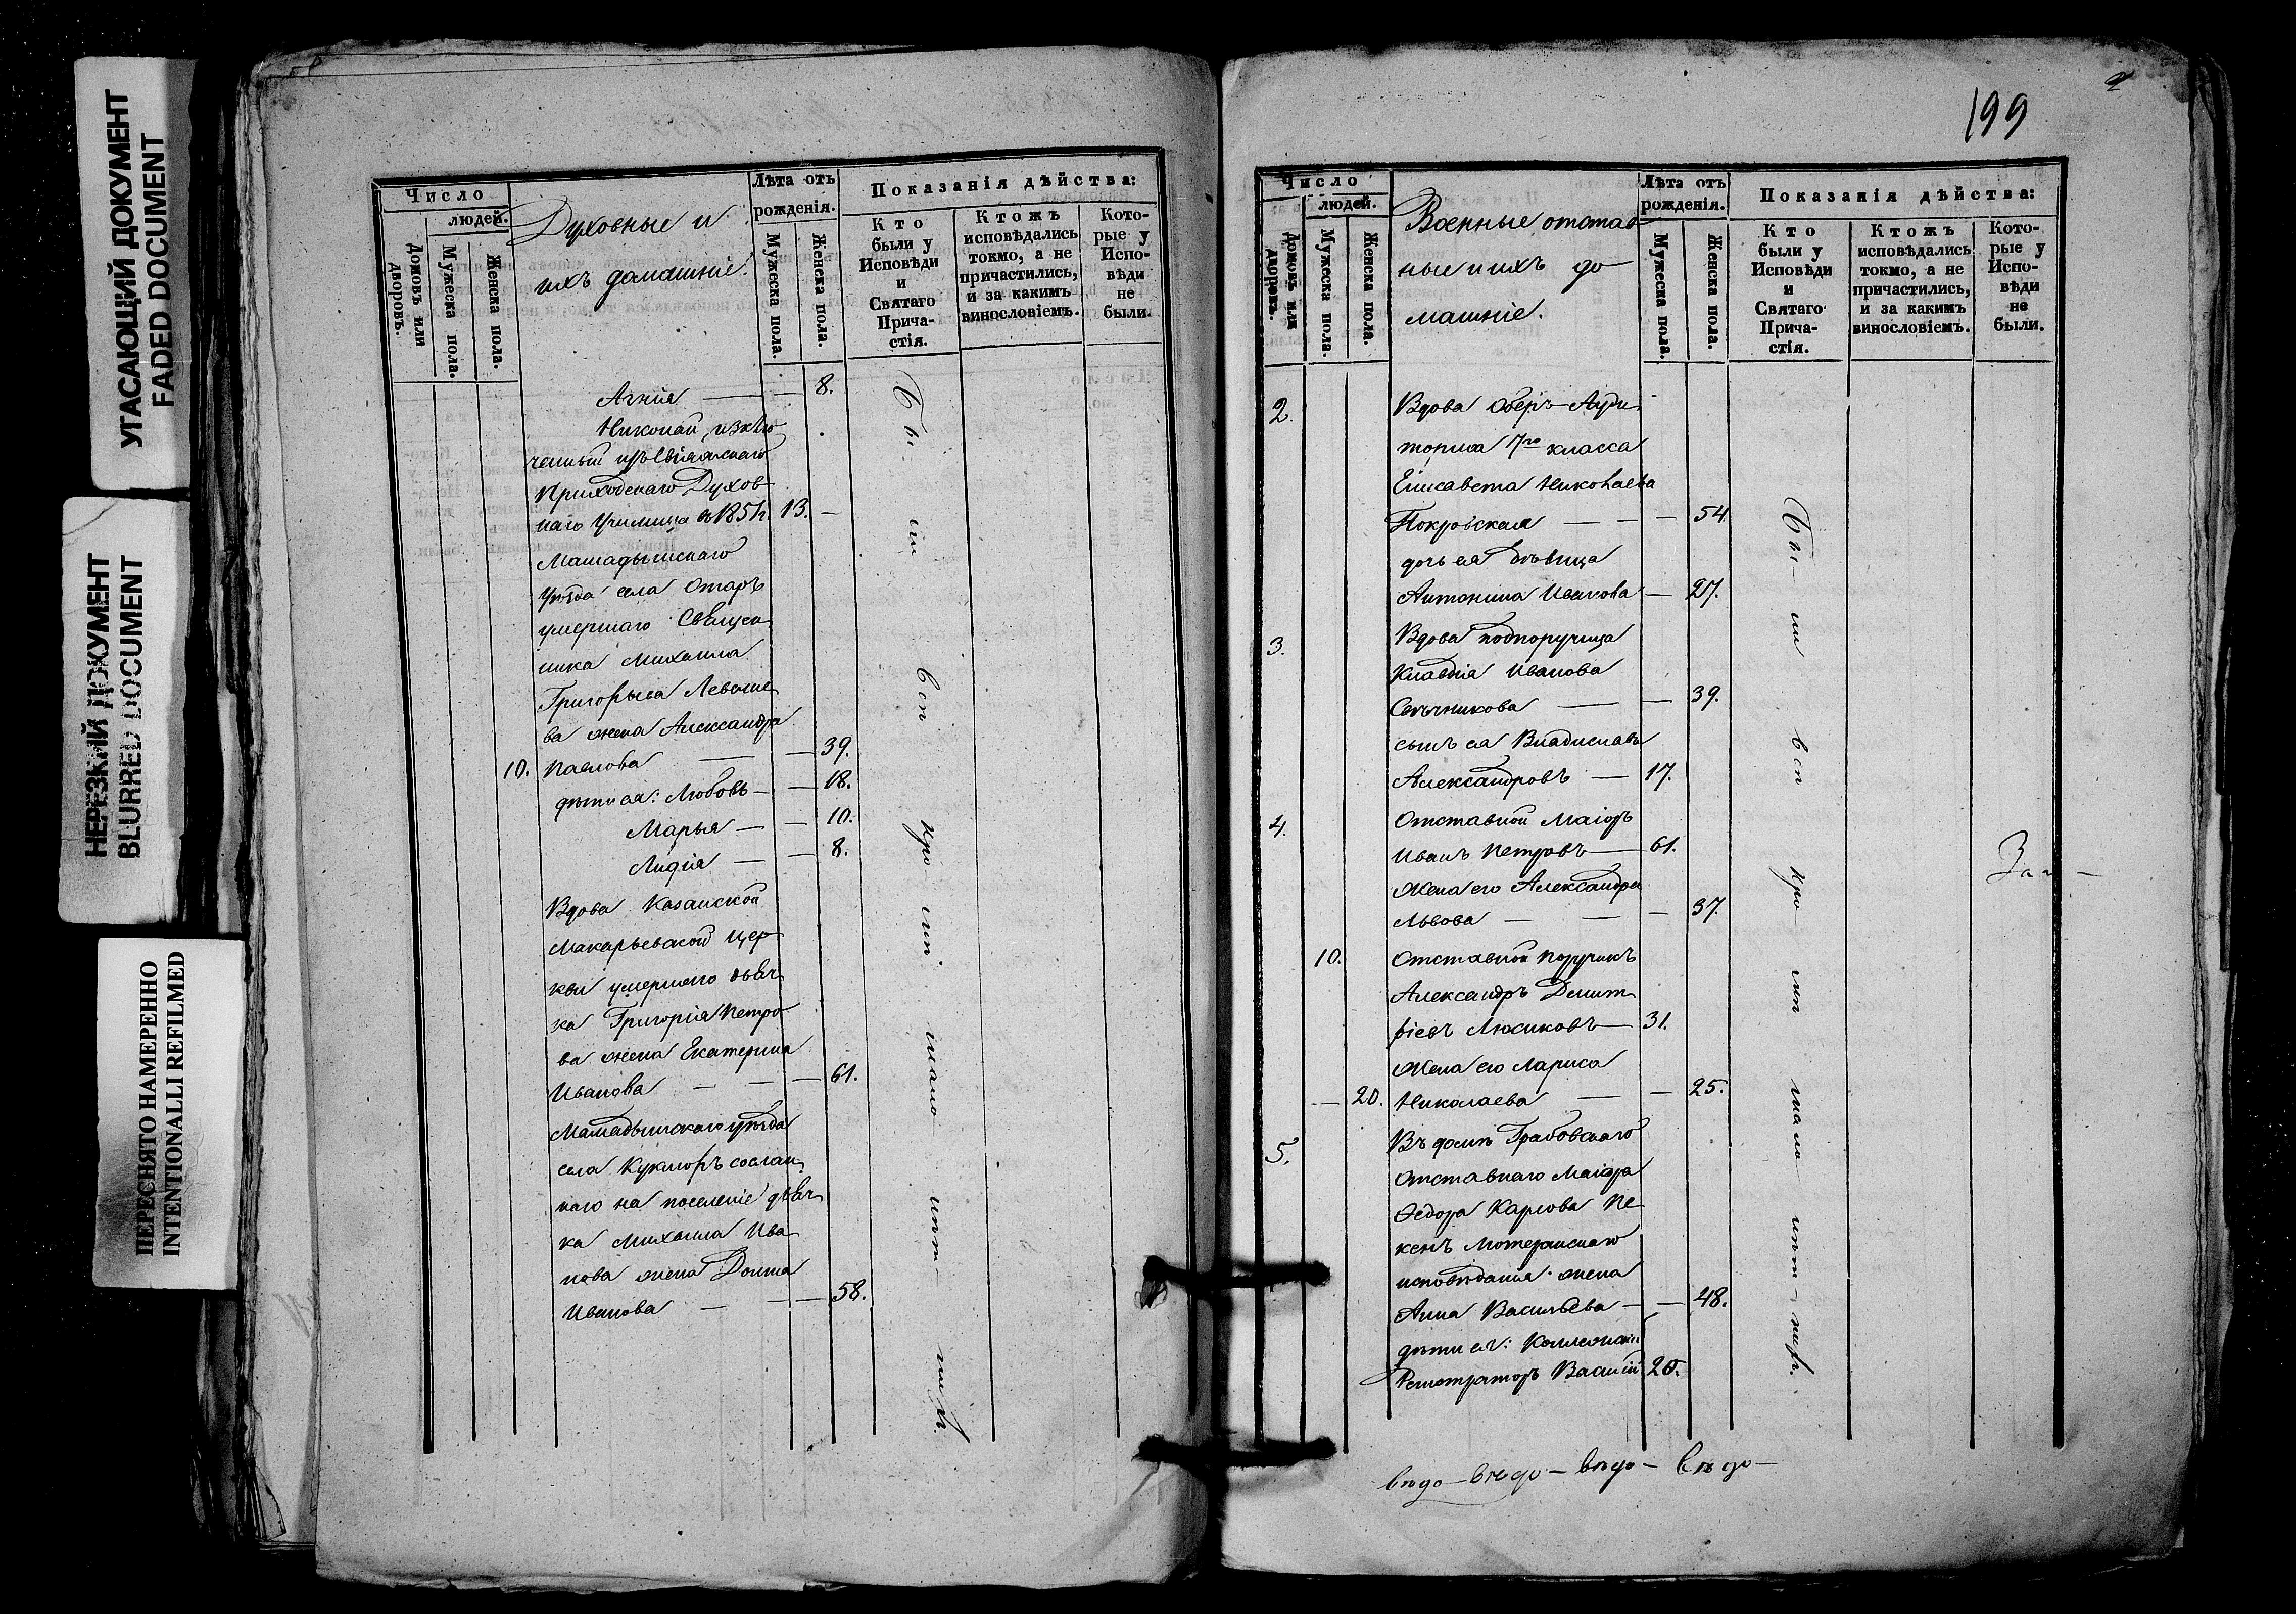 УГАСАЮЩИЙ ДОКУМЕНТ
FADED DOCUMENT
НЕРЕЗКИЙ ДОКУМЕНТ
BLURRED DOCUMENT
ПЕРЕСНЯТО НАМЕРЕННО
INTENTIONALLI REFILMED
Число
людей.
Домовъ или дворовъ.
Мужеска пола.
Женска пола.
Духовные и
ихъ домашніе.
Лѣта отъ
рожденія.
Мужеска пола.
Женска пола.
Показанія дѣйства:
Кто
были у
Исповѣди
и
Святаго
Прича-
стія.
Ктожъ
исповѣдались
токмо, а не
причастились,
и за какимъ
винословіемъ.
Кото-
рые у
Испо-
вѣди
не
были.
Агнія — — 8.
Николай, исклю
ченный изъ Свіяжскаго
Приходскаго Духов
наго Училища въ 1857г. 13. —
Мамадышскаго
уѣзда села Отаръ
умершаго Священ
ника Михаила
Григорьева Леваше
ва жена Александра
10. Павлова — — 39.
дѣти ея: Любовь — — 18.
Марья — — 10.
Лидія — — 8.
Вдова Казанской
Макарьевской Цер
кви умершаго дьяч
ка Григорія Петро
ва жена Екатерина
Иванова — — — 61.
Мамадышскаго уѣзда
села Кукморъ сослан
наго на поселеніе дьяч
ка Михаила Ива
нова жена Домна
Иванова — — — 58.
199
Число
людей.
Домовъ или дворовъ.
Мужеска пола.
Женска пола.
Военные отстав
ные и ихъ до
машніе.
Лѣта отъ
рожденія.
Мужеска пола.
Женска пола.
Показанія дѣйства:
Кто
были у
Исповѣди
и
Святаго
Прича-
стія.
Ктожъ
исповѣдались
токмо, а не
причастились,
и за какимъ
винословіемъ.
Кото-
рые у
Испо-
вѣди
не
были.
2. Вдова Оберъ-Ауди
торша 7го класса
Елисавета Николаева
Покровская — — — 54.
дочь ея дѣвица
Антонина Иванова — 27.
3. Вдова подпоручица
Клавдія Иванова
— — 39.
сынъ ея Владиславъ
Александровъ — 17.
4. Отставной Маіоръ
Иванъ Петровъ — 61.
Жена его Александра
Львова — — — 37.
10. Отставной поручикъ
Александръ Димит
ріевъ — 31.
Жена его Лариса
— 20. Николаева — — 25.
5. Въ домѣ Грабовскаго
Отставнаго Маіора
Ѳедора Карлова
исповѣданія жена
Анна Васильева — — 48.
дѣти ея: Коллежскій
Регистраторъ Василій 20.